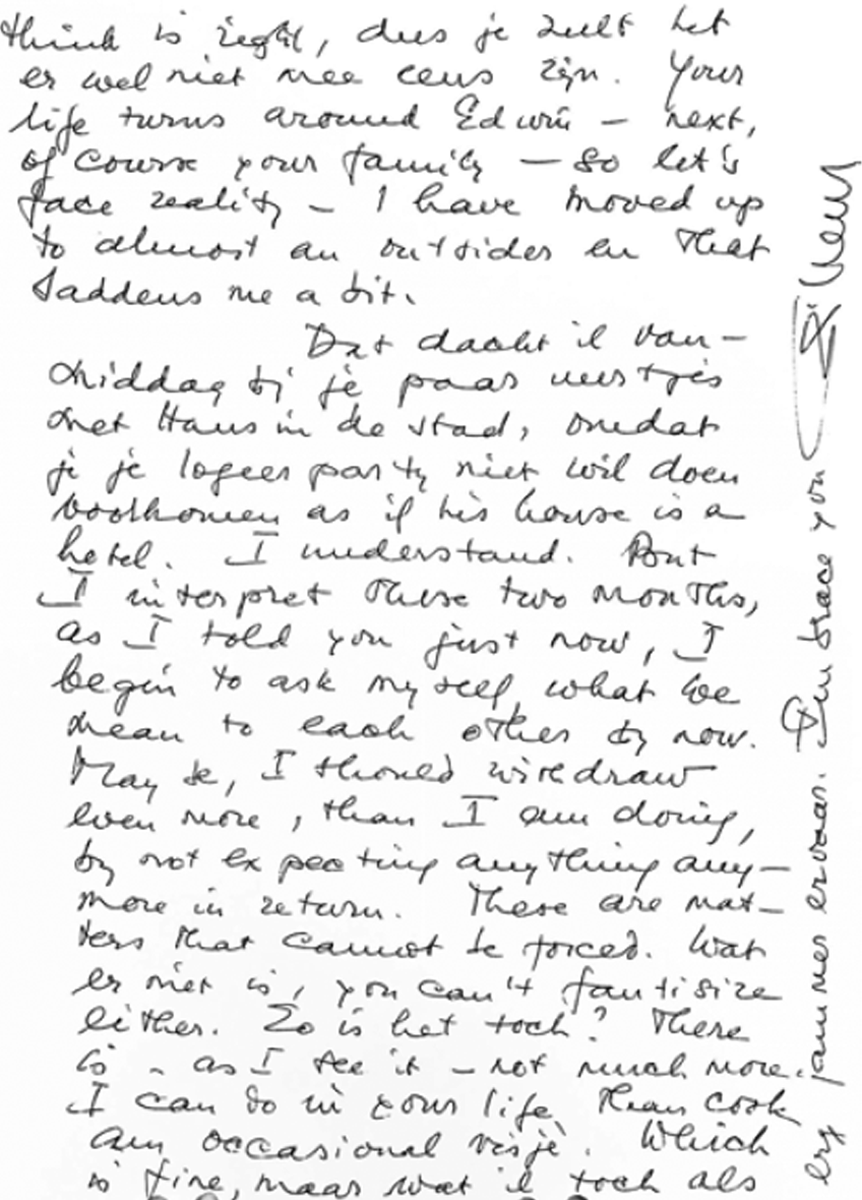 think is right, dus je zult het
er wel niet mee eens zijn. Your
life turns around Edwin — next,
of course your family — so let's
face reality — I have moved up
to almost an outsider en that
saddens me a bit.
Dat dacht ik van-
middag bij je paar uurtjes
met Hans in de stad, omdat
je je logeer party niet wil doen
voorkomen as if his house is a
hotel. I understand. But
I interpret these two months,
as I told you just now, I
begin to ask myself what we
mean to each other by now.
May be, I should wiredraw
even more, than I am doing,
by not expecting anything any-
more in return. These are mat-
ters that cannot be forced. Wat
er niet is, you can't fantisize
either. Zo is het toch? There
is - as I see it - not much more
I can do in your life than cook
an occasional visje. Which
is fine, maar wat ik toch als
erg jammer ervaar. Embrace you